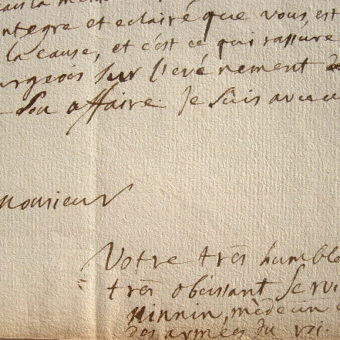 integre et eclairé que vous, est
la cause, et c'est ce qui rassure
urgeois sur l'evénement de
son affaire je suis avec
monsieur
Votre très humble
très obeissant servi
medecin
des armées du roi.